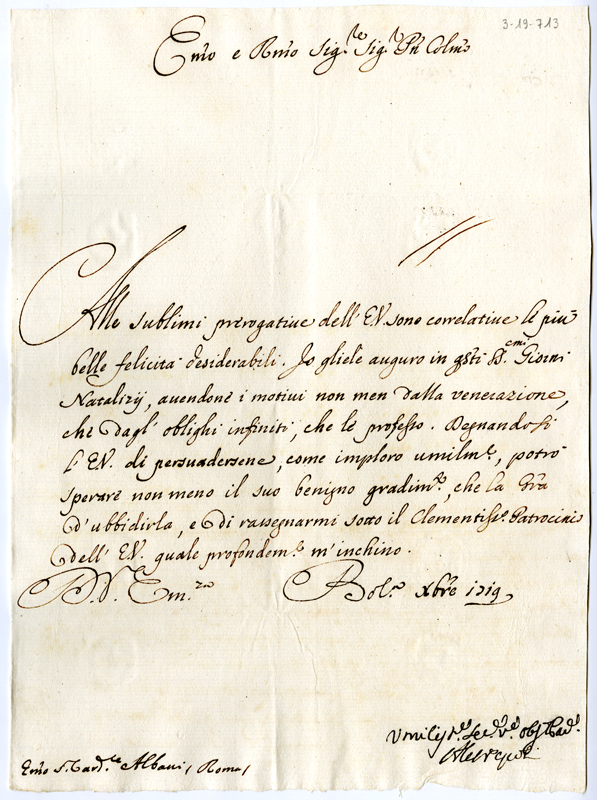 3-19-713
Emo e Rmo Sig.re Sig.r Pn Colmo
Alle sublimi prerogative dell' E.V. sono correlative le piu
belle felicità desiderabili. Io glielè auguro in qsti S.cmi Giorni
Natalizij, avendonè i motivi non men dalla venerazione,
chè dagl' oblighi infiniti, che le professo. Degnandosi
l'E.V. di persuadersene, come imploro umilm.e, potrò
sperarè non meno il suo benigno gradim.to, che la Gra
d'ubbidirla, e di rassegnarmi sotto il Clementiss.o Patrocinio
dell' E.V. quale profondem.e m'inchino.
D. V. Em.za Bol.a Xbre 1719
Umiliss.o Se.re obl
Emo S. Card.le Albani / Roma /